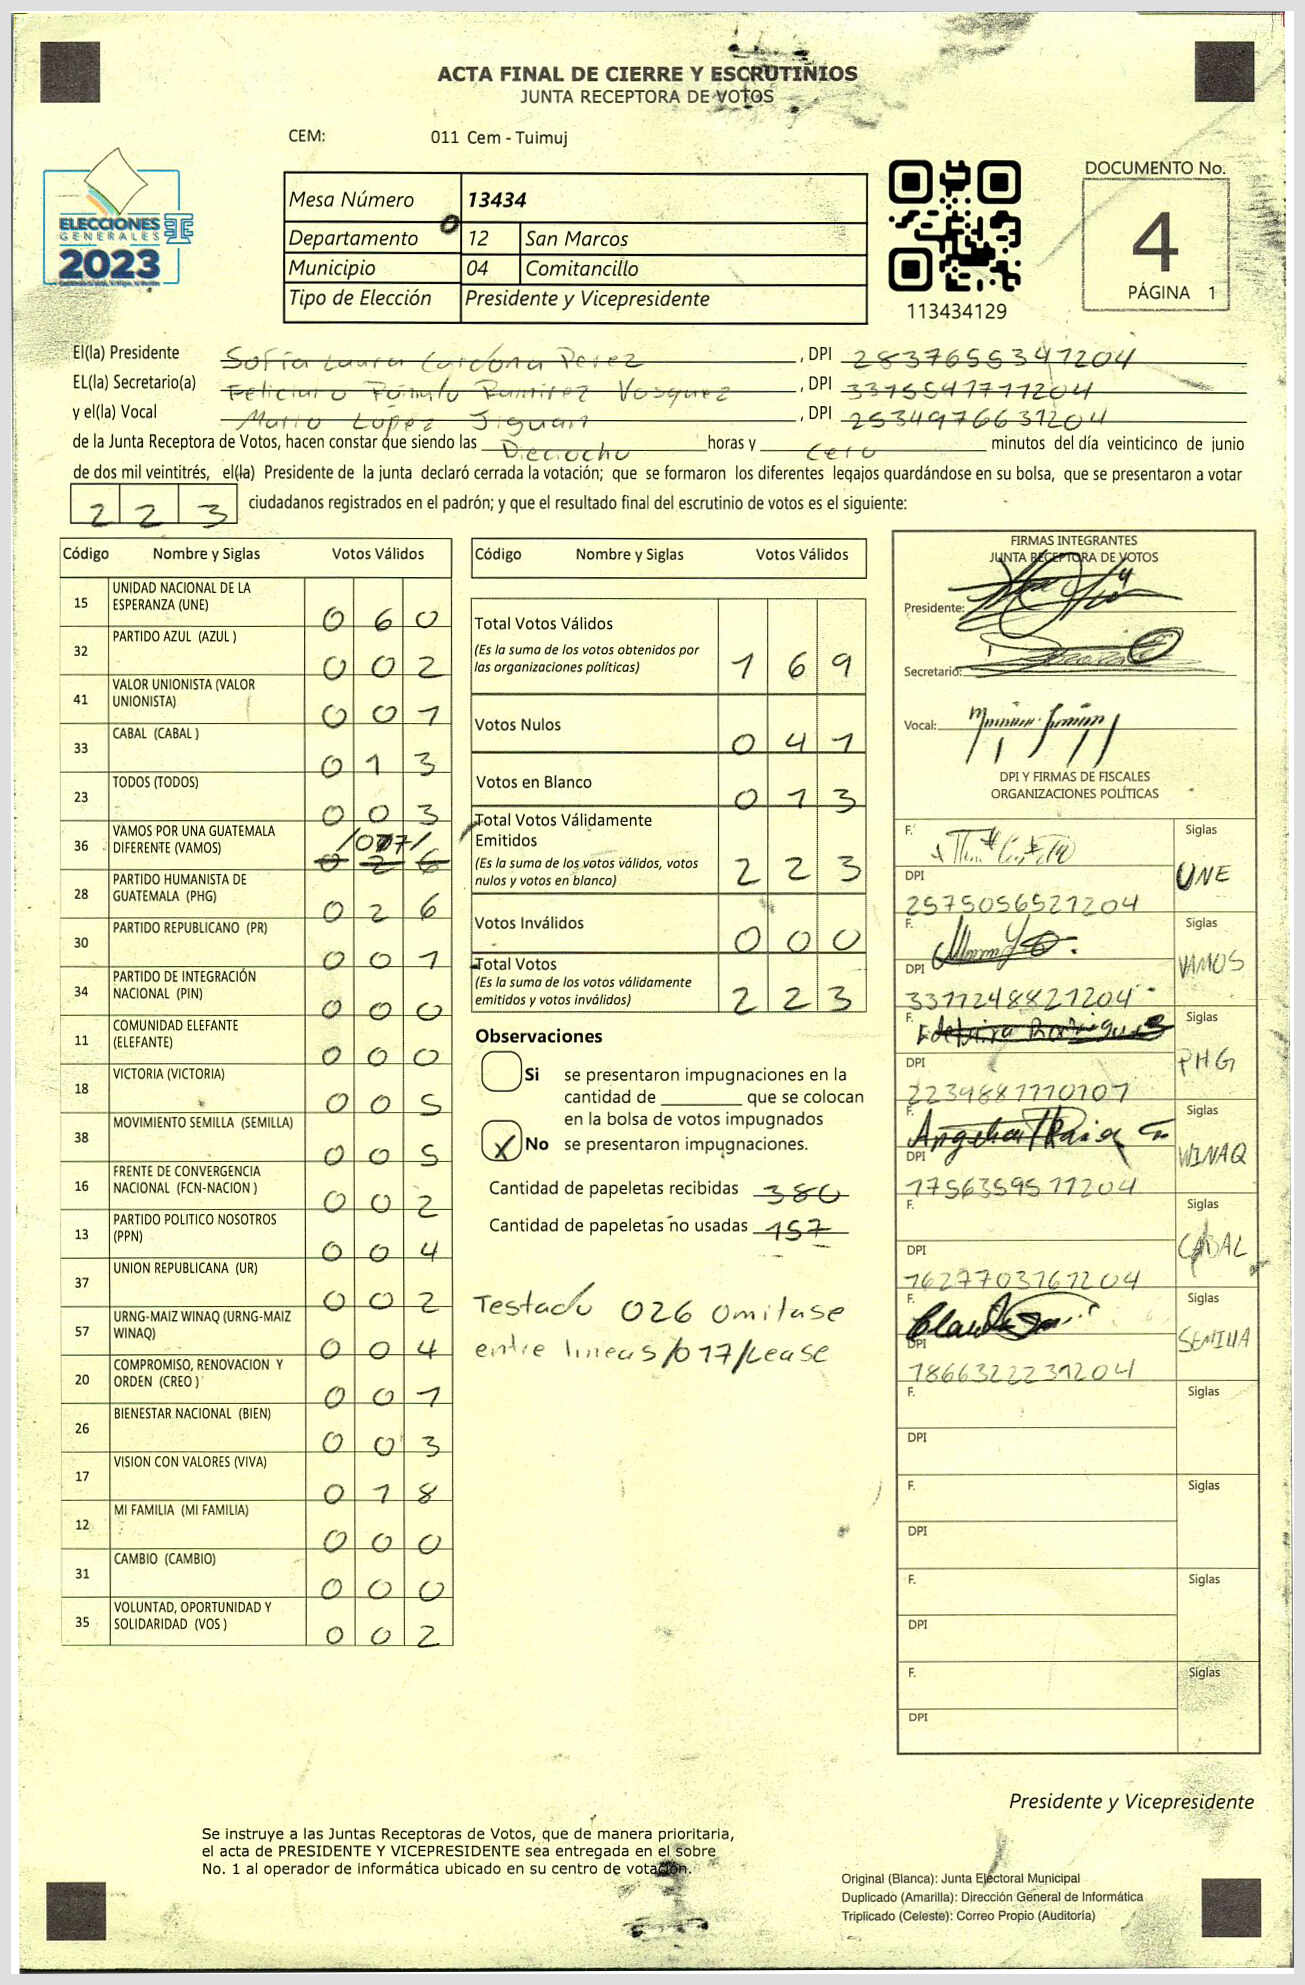 ACTA FINAL DE CIERRE Y ESCRUTINIOS
JUNTA RECEPTORA DE VOTOS
CEM: 011 Cem - Tuimuj
ELECCIONES
GENERALES
2023
Mesa Número 13434
Departamento 12 San Marcos
Municipio 04 Comitancillo
Tipo de Elección Presidente y Vicepresidente
113434129
DOCUMENTO No.
4
PÁGINA 1
El(la) Presidente Sofía Laura Cardona Perez, DPI 2837655341204
EL(la) Secretario(a) Feliciano Rómulo Ramirez Vasquez, DPI 3375541771204
y el(la) Vocal Mario López Jiguan, DPI 2534976631204
de la Junta Receptora de Votos, hacen constar que siendo las Dieciocho horas y cero minutos del día veinticinco de junio
de dos mil veintitrés, el(la) Presidente de la junta declaró cerrada la votación; que se formaron los diferentes legajos guardándose en su bolsa, que se presentaron a votar
223 ciudadanos registrados en el padrón; y que el resultado final del escrutinio de votos es el siguiente:
Código Nombre y Siglas Votos Válidos
15 UNIDAD NACIONAL DE LA ESPERANZA (UNE) 060
32 PARTIDO AZUL (AZUL ) 002
41 VALOR UNIONISTA (VALOR UNIONISTA) 001
33 CABAL (CABAL ) 013
23 TODOS (TODOS) 003
36 VAMOS POR UNA GUATEMALA DIFERENTE (VAMOS) /017/ 026
28 PARTIDO HUMANISTA DE GUATEMALA (PHG) 026
30 PARTIDO REPUBLICANO (PR) 001
34 PARTIDO DE INTEGRACIÓN NACIONAL (PIN) 000
11 COMUNIDAD ELEFANTE (ELEFANTE) 000
18 VICTORIA (VICTORIA) 005
38 MOVIMIENTO SEMILLA (SEMILLA) 005
16 FRENTE DE CONVERGENCIA NACIONAL (FCN-NACION ) 002
13 PARTIDO POLITICO NOSOTROS (PPN) 004
37 UNION REPUBLICANA (UR) 002
57 URNG-MAIZ WINAQ (URNG-MAIZ WINAQ) 004
20 COMPROMISO, RENOVACION Y ORDEN (CREO ) 001
26 BIENESTAR NACIONAL (BIEN) 003
17 VISION CON VALORES (VIVA) 018
12 MI FAMILIA (MI FAMILIA) 000
31 CAMBIO (CAMBIO) 000
35 VOLUNTAD, OPORTUNIDAD Y SOLIDARIDAD (VOS ) 002
Código Nombre y Siglas Votos Válidos
Total Votos Válidos 169
(Es la suma de los votos obtenidos por
las organizaciones políticas)
Votos Nulos 041
Votos en Blanco 013
Total Votos Válidamente
Emitidos 223
(Es la suma de los votos válidos, votos
nulos y votos en blanco)
Votos Inválidos 000
Total Votos 223
(Es la suma de los votos válidamente
emitidos y votos inválidos)
Observaciones
Si se presentaron impugnaciones en la
cantidad de ________ que se colocan
en la bolsa de votos impugnados
X No se presentaron impugnaciones.
Cantidad de papeletas recibidas 380
Cantidad de papeletas no usadas 157
Testado 026 Omitase
entre lineas /017/ Lease
FIRMAS INTEGRANTES
JUNTA RECEPTORA DE VOTOS
Presidente:
Secretario:
Vocal:
DPI Y FIRMAS DE FISCALES
ORGANIZACIONES POLÍTICAS
F. Siglas UNE
DPI 2575056521204
F. Siglas VAMOS
DPI 3311248821204
F. Siglas PHG
DPI 2239881110101
F. Siglas WINAQ
DPI 1756359511204
F. Siglas CABAL
DPI 1627703161204
F. Siglas SEMILLA
DPI 1866322231204
F. Siglas
DPI
F. Siglas
DPI
F. Siglas
DPI
F. Siglas
DPI
Presidente y Vicepresidente
Se instruye a las Juntas Receptoras de Votos, que de manera prioritaria,
el acta de PRESIDENTE Y VICEPRESIDENTE sea entregada en el sobre
No. 1 al operador de informática ubicado en su centro de votación.
Original (Blanca): Junta Electoral Municipal
Duplicado (Amarilla): Dirección General de Informática
Triplicado (Celeste): Correo Propio (Auditoría)